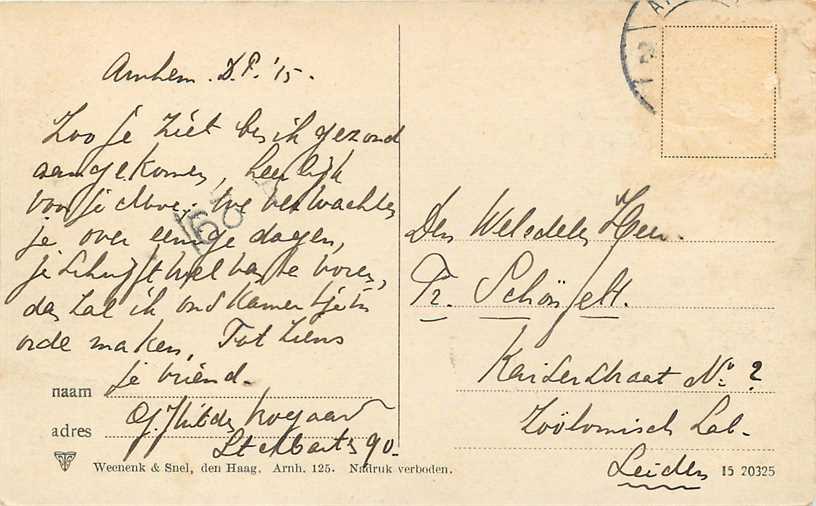 Arnhem. D.P. '15.
Zoo je ziet ben ik gezond
aangekomen, heerlijk
voor je We verwachten
je over eenige dagen,
je schrijft wel van te voren,
dan zal ik ons kamertje in
orde maken, Tot ziens
je vriend.
naam
adres
90.
Weenenk & Snel, den Haag. Arnh. 125. Nadruk verboden.
Den Weledelen Heer.
Fr. Schönfelt.
Kaiserstraat No. 2
Zoölomisch Lab.
Leiden
15 20325